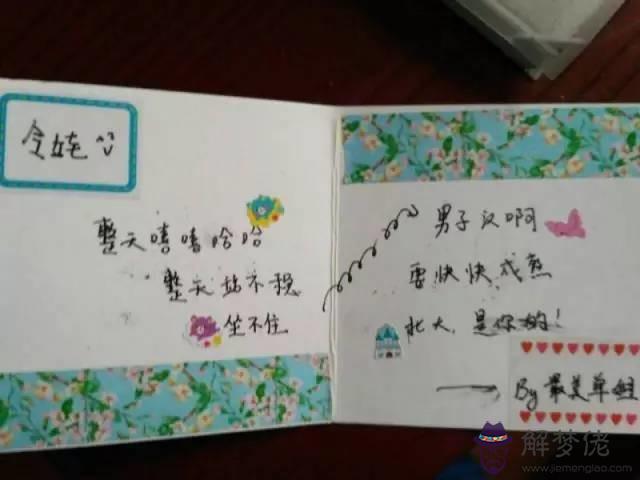 整天嘻嘻哈哈
整天站不稳
坐不住
男子汉啊
要快快成熟
北大，是你的！
By 最美单姐
解梦佬
www.jiemenglao.com